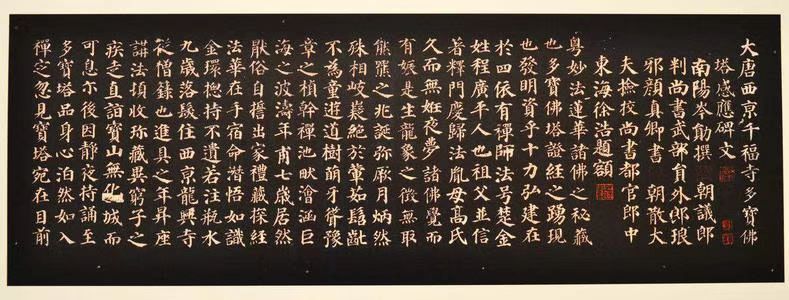 大唐西京千福寺多寶佛
塔感應碑文
南陽岑勛撰 朝議郎
判尚書武部員外郎琅
邪顏真卿書 朝散大
夫撿挍尚書都官郎中
東海徐浩題額
粵妙法蓮華諸佛之秘藏
也多寶佛塔證經之踴現
也發明資乎十力弘建在
於四依有禪師法号楚金
姓程廣平人也祖父並信
著釋門慶歸法胤母高氏
久而無姙夜夢諸佛覺而
有娠是生龍象之徵無取
熊羆之兆誕弥厥月炳然
殊相岐嶷絕於葷茹髫齔
不為童遊道樹萌牙聳豫
章之楨幹禪池畎澮涵巨
海之波濤年甫七歲居然
厭俗自誓出家禮藏探經
法華在手宿命潛悟如識
金環揔持不遺若注瓶水
九歲落髮住西京龍興寺
從僧籙也進具之年昇座
講法頓收珍藏異窮子之
疾走直詣寶山無化城而
可息尒後因靜夜持誦至
多寶塔品身心泊然如入
禪定忽見寶塔宛在目前